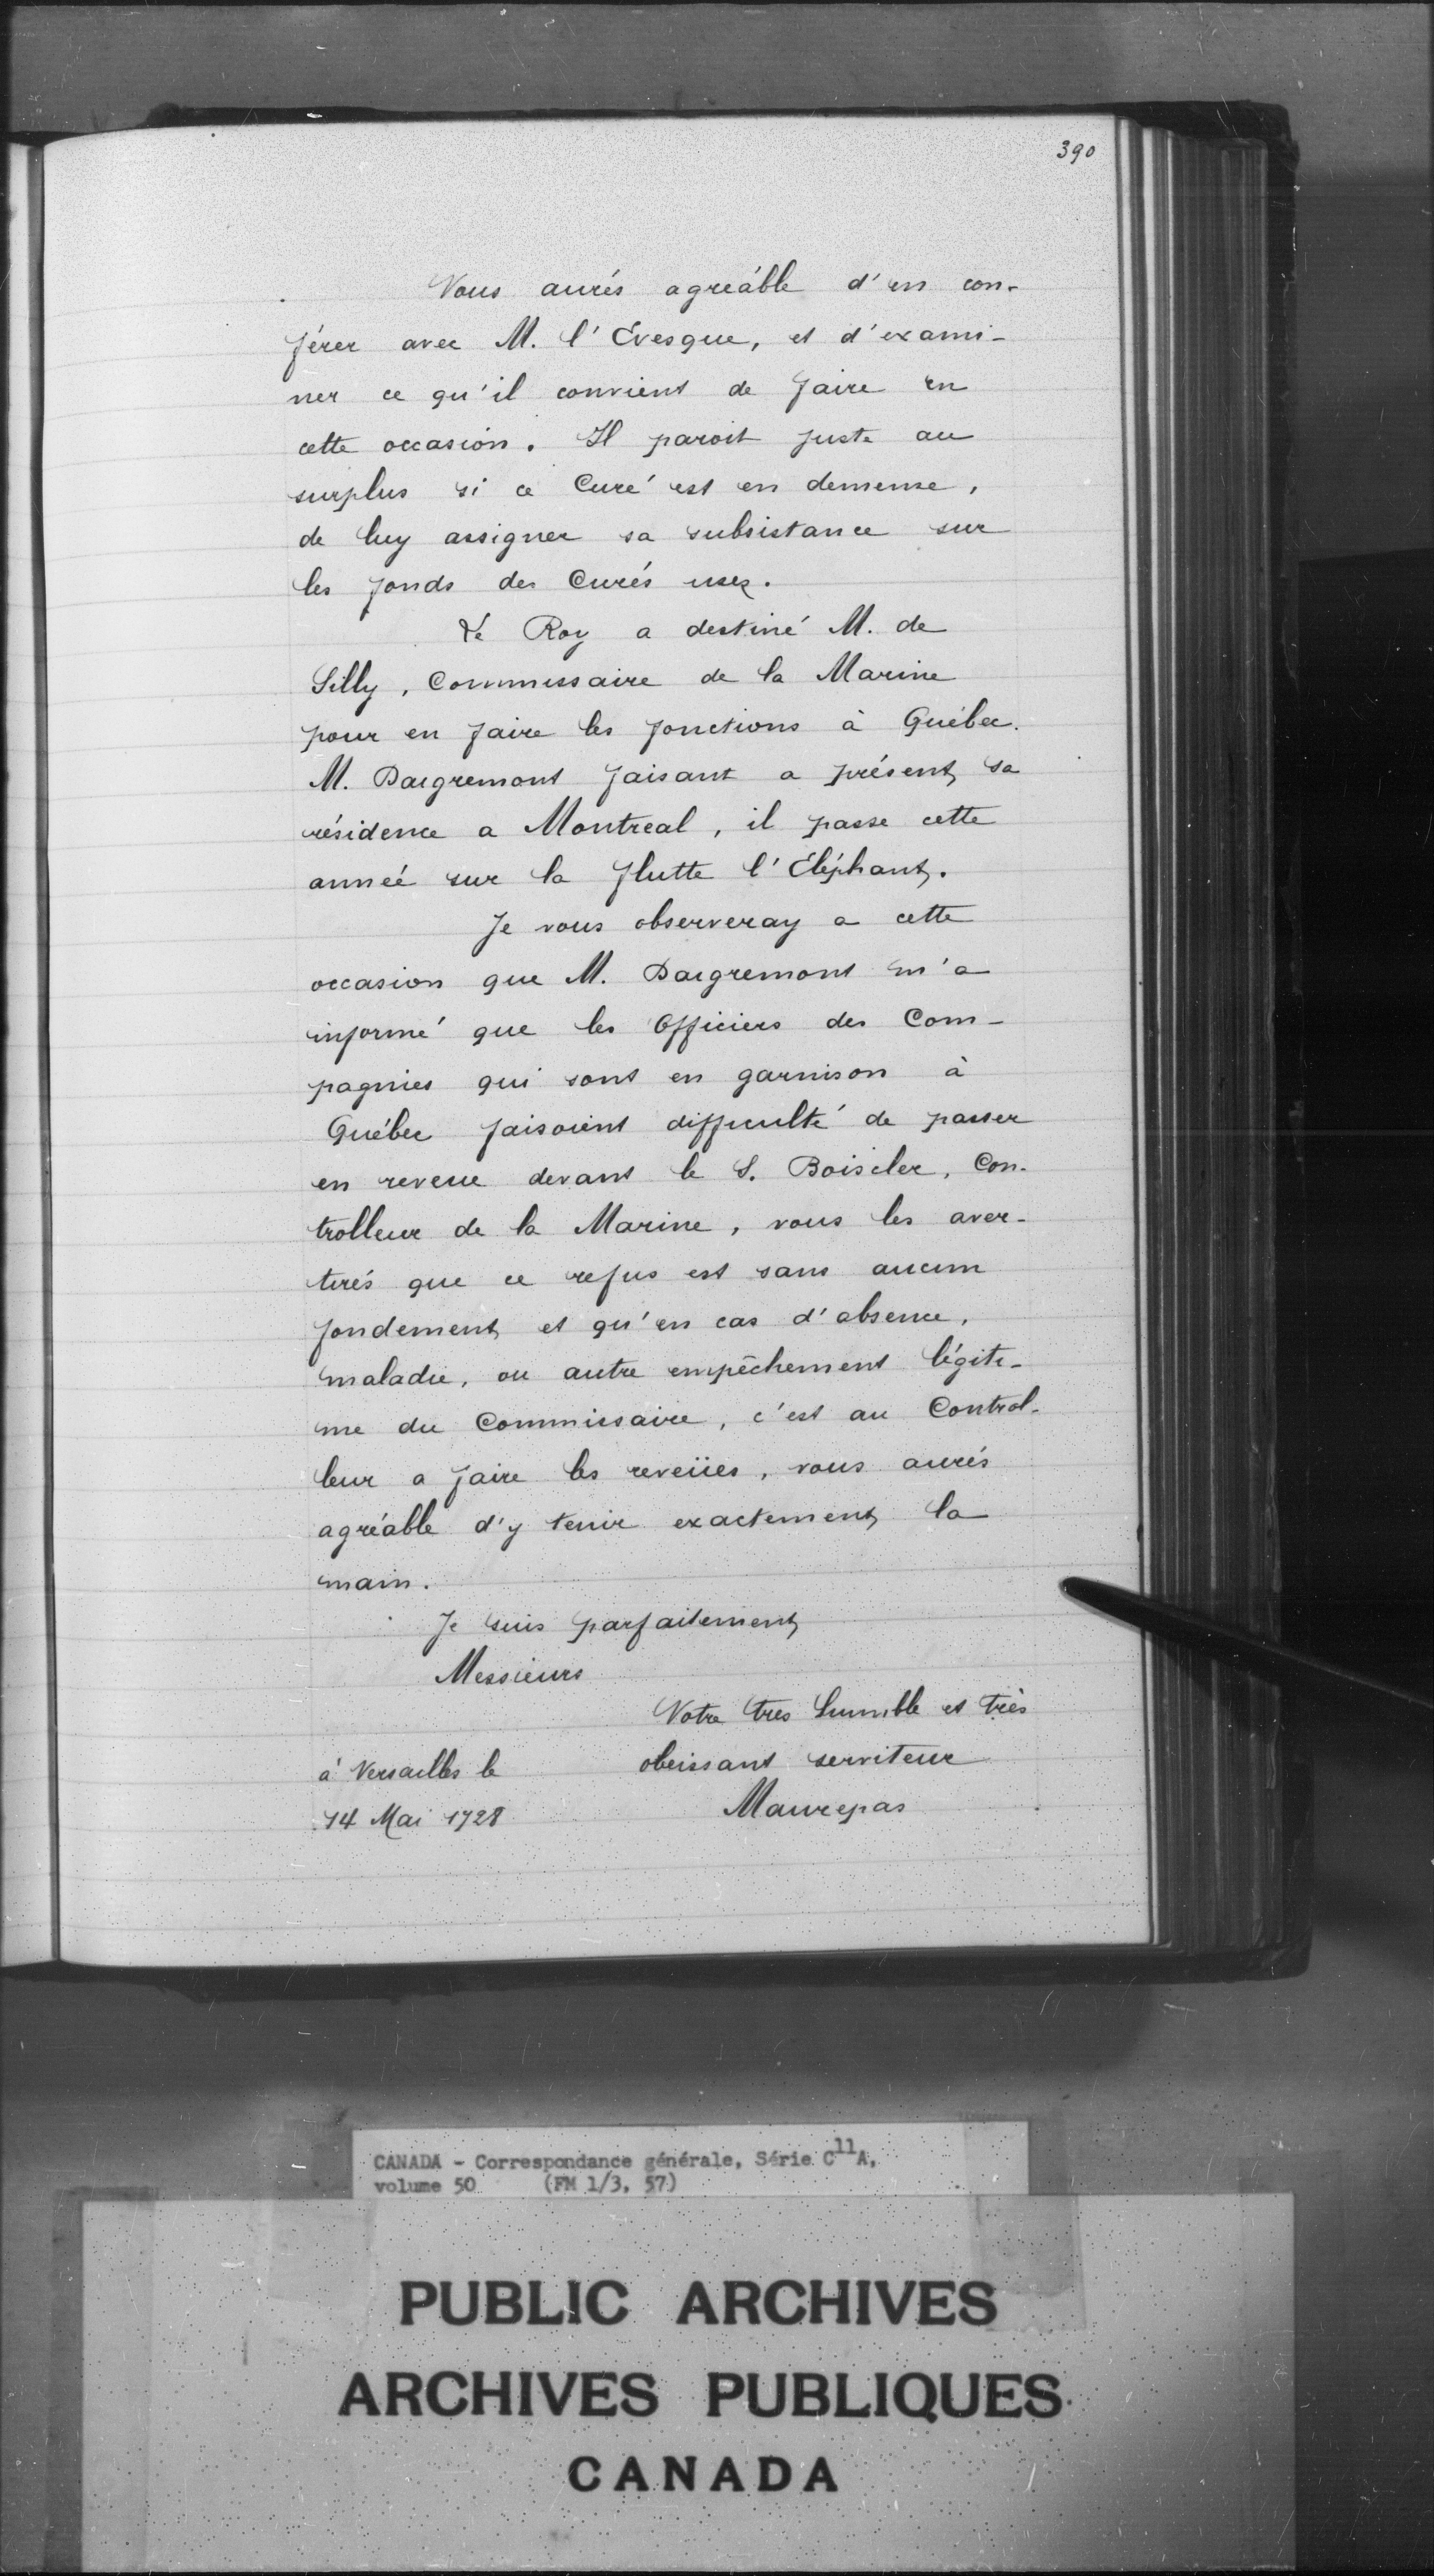 390
Vous aurés agréable d'en con-
férer avec M. l'Evesque, et d'exami-
ner ce qu'il convient de faire en
cette occasion. Il paroit juste au
surplus si ce Curé est en demence,
de luy assigner sa subsistance sur
les fonds des Curés usez.
Le Roy a destiné M. de
Silly, Commissaire de la Marine
pour en faire les fonctions à Québec.
M. Daigremont faisant a présent sa
résidence a Montreal, il passe cette
année sur la flutte l'Eléphant.
Je vous observeray a cette
occasion que M. Daigremont m'a
informé que les Officiers des Com-
pagnies qui sont en garnison à
Québec faisoient difficulté de passer
en reveue devant le S. Boiscler, Con-
trolleur de la Marine, vous les aver-
tirés que ce refus est sans aucun
fondement et qu'en cas d'absence,
maladie, ou autre empêchement légiti-
me du Commissaire, c'est au Control-
leur a faire les reveües, vous aurés
agréable d'y tenir exactement la
main.
Je suis parfaitement
Messieurs
Votre tres humble et très
obeissant serviteur
Maurepas
à Versailles le
14 Mai 1728
CANADA - Correspondance générale, Série C11A,
volume 50 (FM 1/3, 57)
PUBLIC ARCHIVES
ARCHIVES PUBLIQUES
CANADA